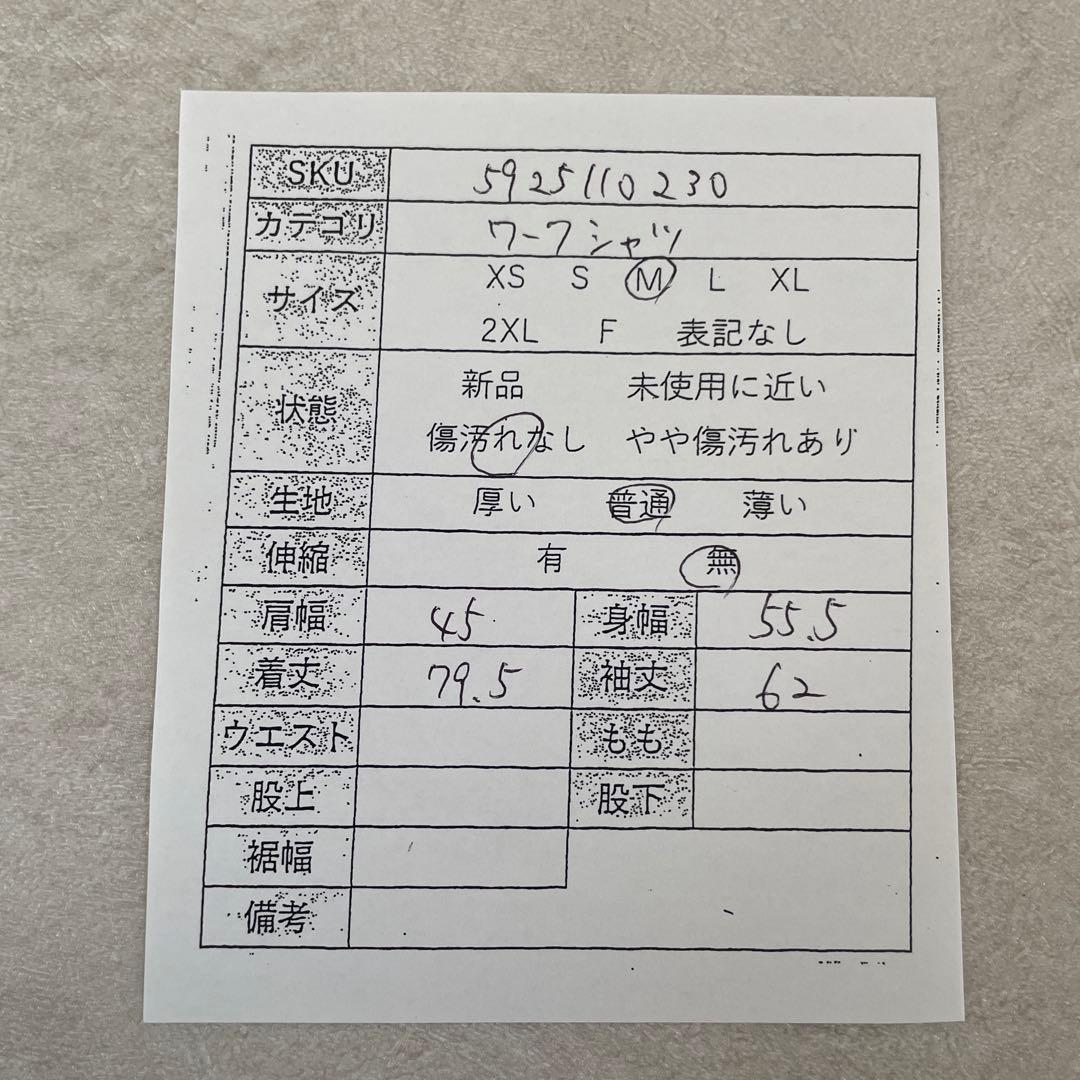 SKU 5925110230
カテゴリ ワークシャツ
サイズ XS S M L XL
2XL F 表記なし
状態 新品 未使用に近い
傷汚れなし やや傷汚れあり
生地 厚い 普通 薄い
伸縮 有 無
肩幅 45 身幅 55.5
着丈 79.5 袖丈 62
ウエスト もも
股上 股下
裾幅
備考